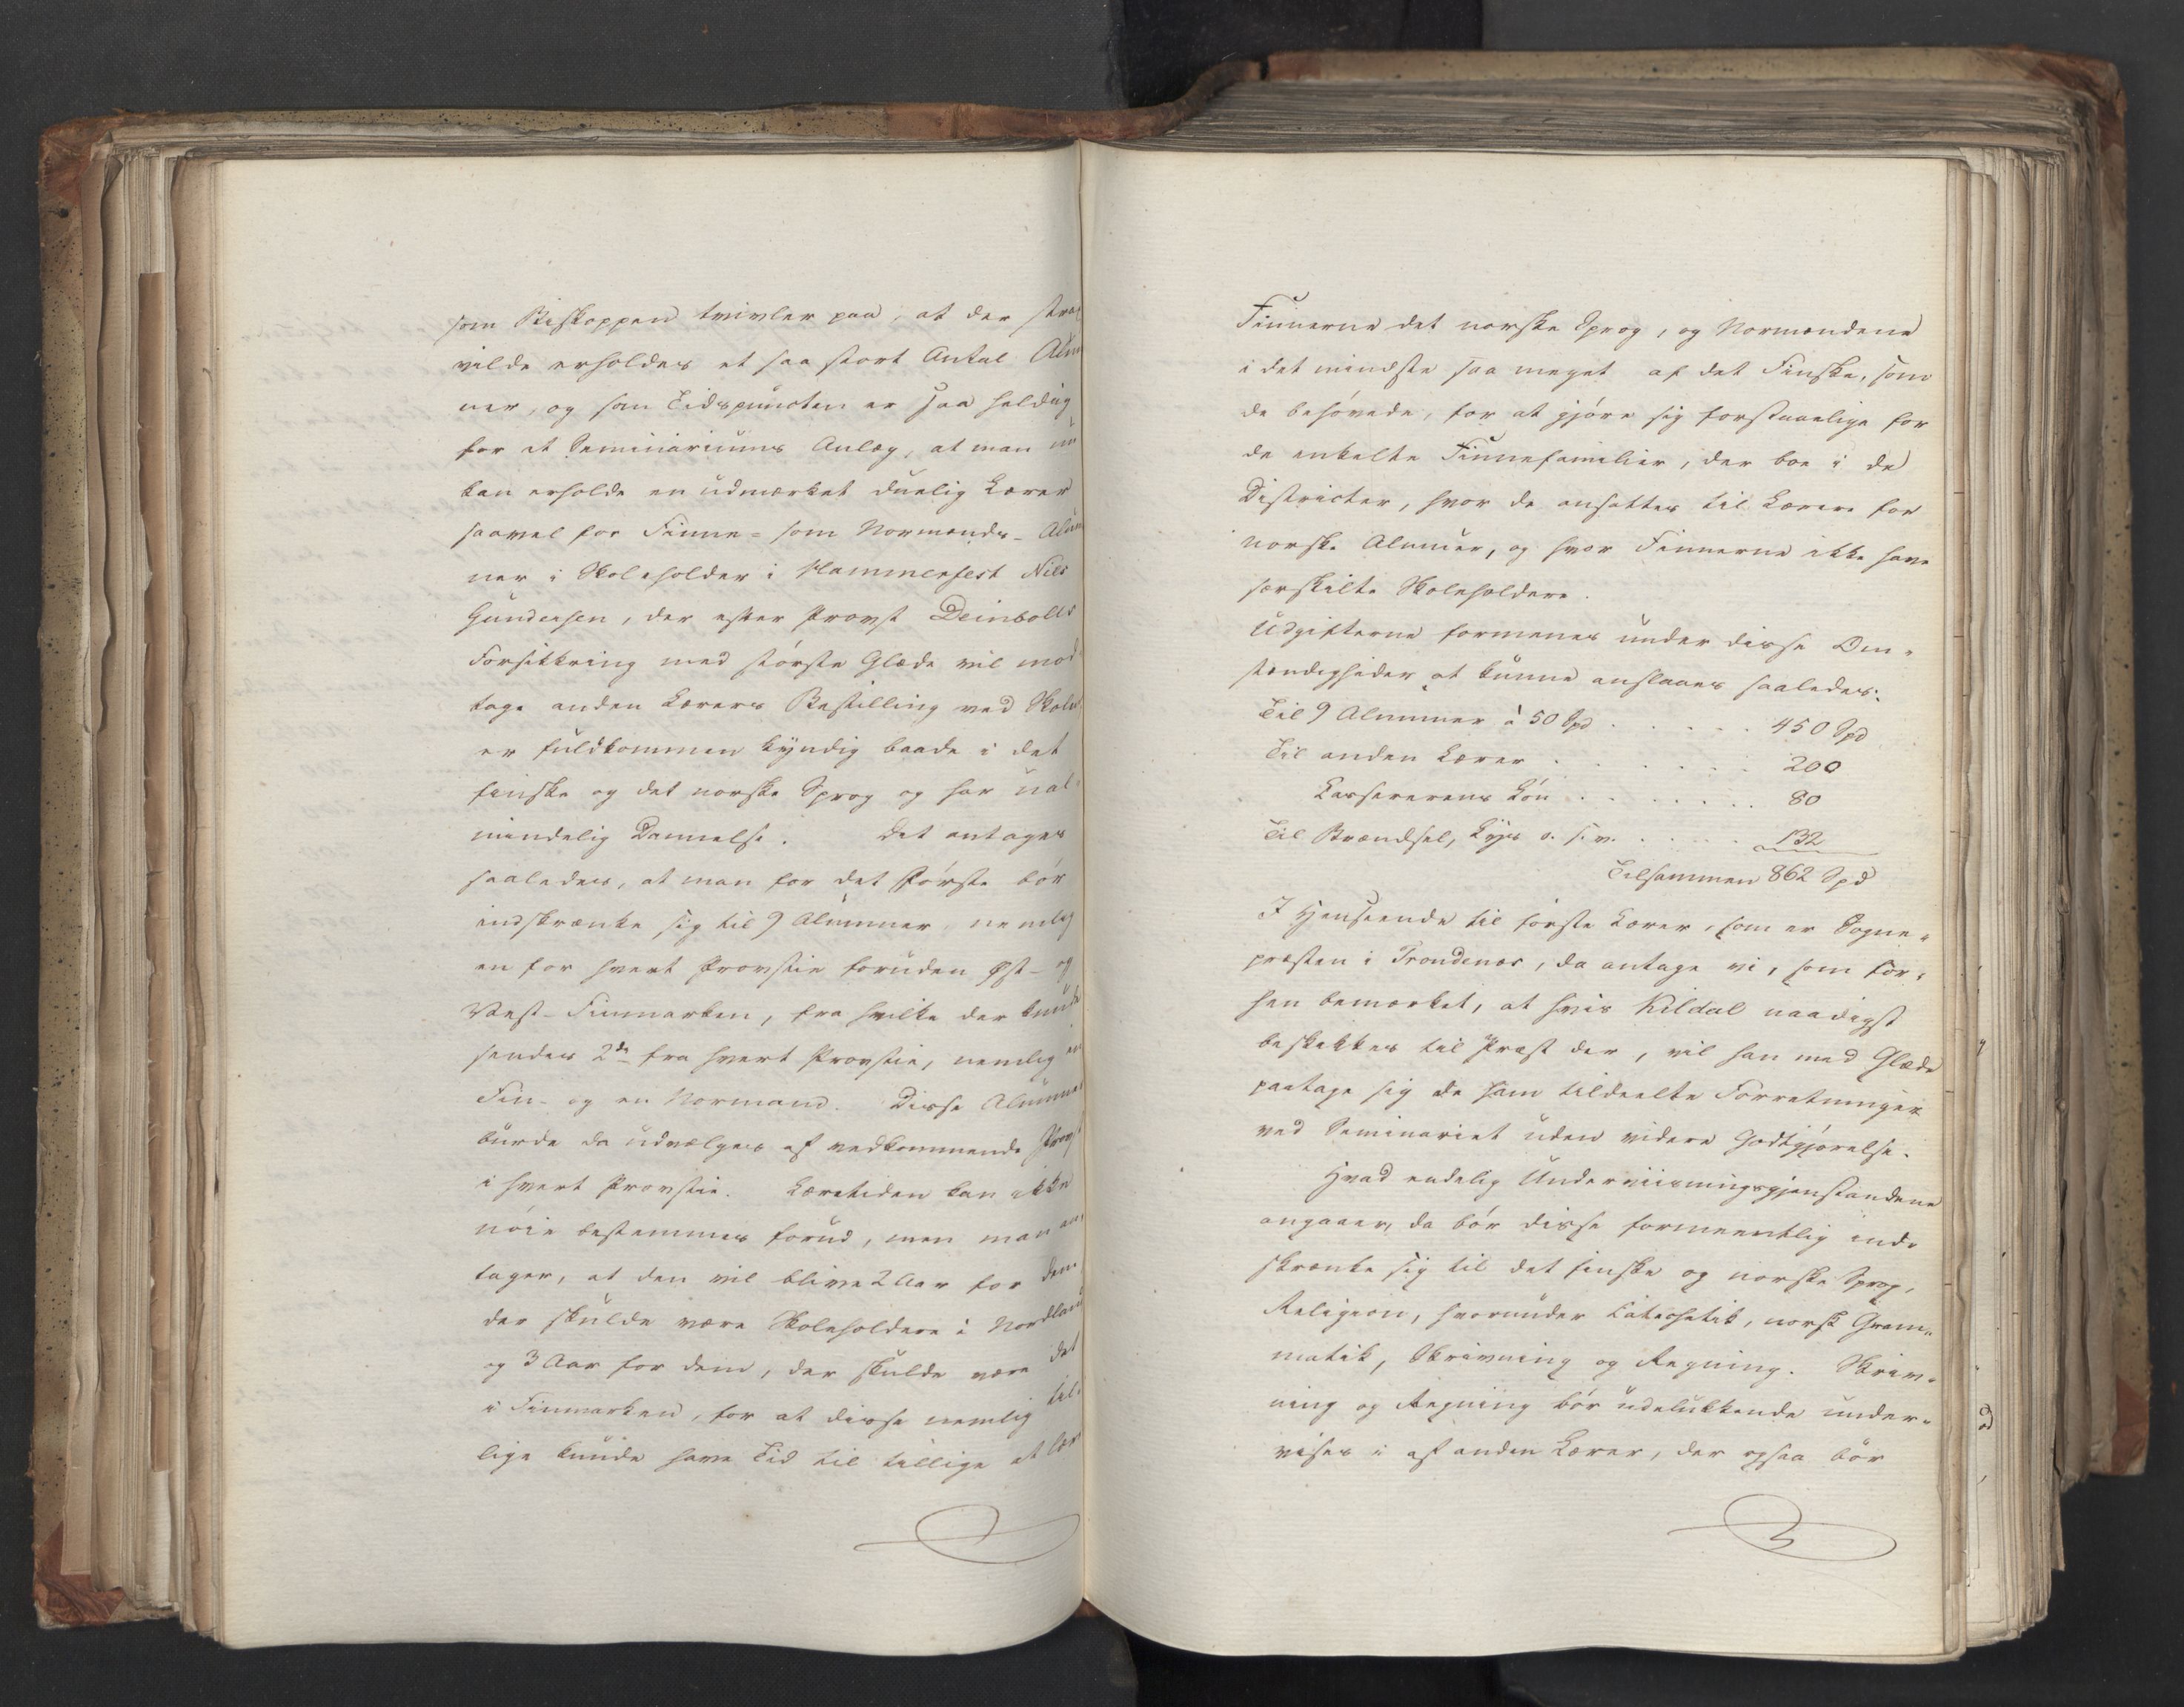 som Biskoppen tvivler paa, at der strax
vilde erholdes et saa stort Antal Alum
ner, og som Tidspuncten er saa heldig
for et Seminariums Anlæg, at man nu
kan erholde en udmærket duelig Lærer
saavel for Finne- som Normands- Alum
ner i Skoleholder i Hammerfest Niels
Gundersen, der efter Provst Deinbolls
Forsikkring med største Glæde vil mod
tage anden Lærers Bestilling ved Skolen
er fuldkommen kyndig baade i det
finske og det norske Sprog og har ual-
mindelig Dannelse. Det antages
saaledes, at man for det første bør
indskrænke sig til 9 Alumner, nemlig
en for hvert Provstie foruden Øst- og
Vest-Finmarken, fra hvilke der kunde
sendes 2de fra hvert Provstie, nemlig en
Fin- og en Normand. Disse Alumner
burde da udvælges af vedkommende Provst
i hvert Provstie. Læretiden kan ikke
nøie bestemmes forud, men man an-
tager, at den vil blive 2 Aar for dem
der skulde være Skoleholdere i Nordland
og 3 Aar for dem, der skulde være det
i Finmarken, for at disse nemlig til-
lige kunde have Tid til tillige at lære
Finnerne det norske Sprog, og Normændene
i det mindste saa meget af det Finske, som
de behøvede, for at gjøre sig forstaaelige for
de enkelte Finnefamilier, der boe i de
Districter, hvor de ansættes til Lærere for
norske Almuer, og hvor Finnerne ikke have
særskilte Skoleholdere.
Udgifterne formenes under disse Om-
stændigheder at kunne anslaaes saaledes:
Til 9 Alumner à 50 Spd . . . . . 450 Spd
Til anden Lærer . . . . . . 200
Kassererens Løn . . . . . . . 80
Til Brændsel, Lys o. s. v. . . . . 132
Tilsammen 862 Spd
I Henseende til første Lærer, som er Sogne-
præsten i Trondenæs, da antage vi, som før-
hen bemærket, at hvis Kildal naadigst
beskikkes til Præst der, vil han med Glæde
paatage sig de ham tildeelte Forretninger
ved Seminariet uden videre Godtgjørelse.
Hvad endelig Underviisningsgjenstandene
angaaer, da bør disse formeentlig ind-
skrænke sig til det finske og norske Sprog,
Religion, hvorunder Catechetik, norsk Gram-
matik, Skrivning og Regning. Skriv-
ning og Regning bør udelukkende under-
vises i af anden Lærer, der ogsaa bør